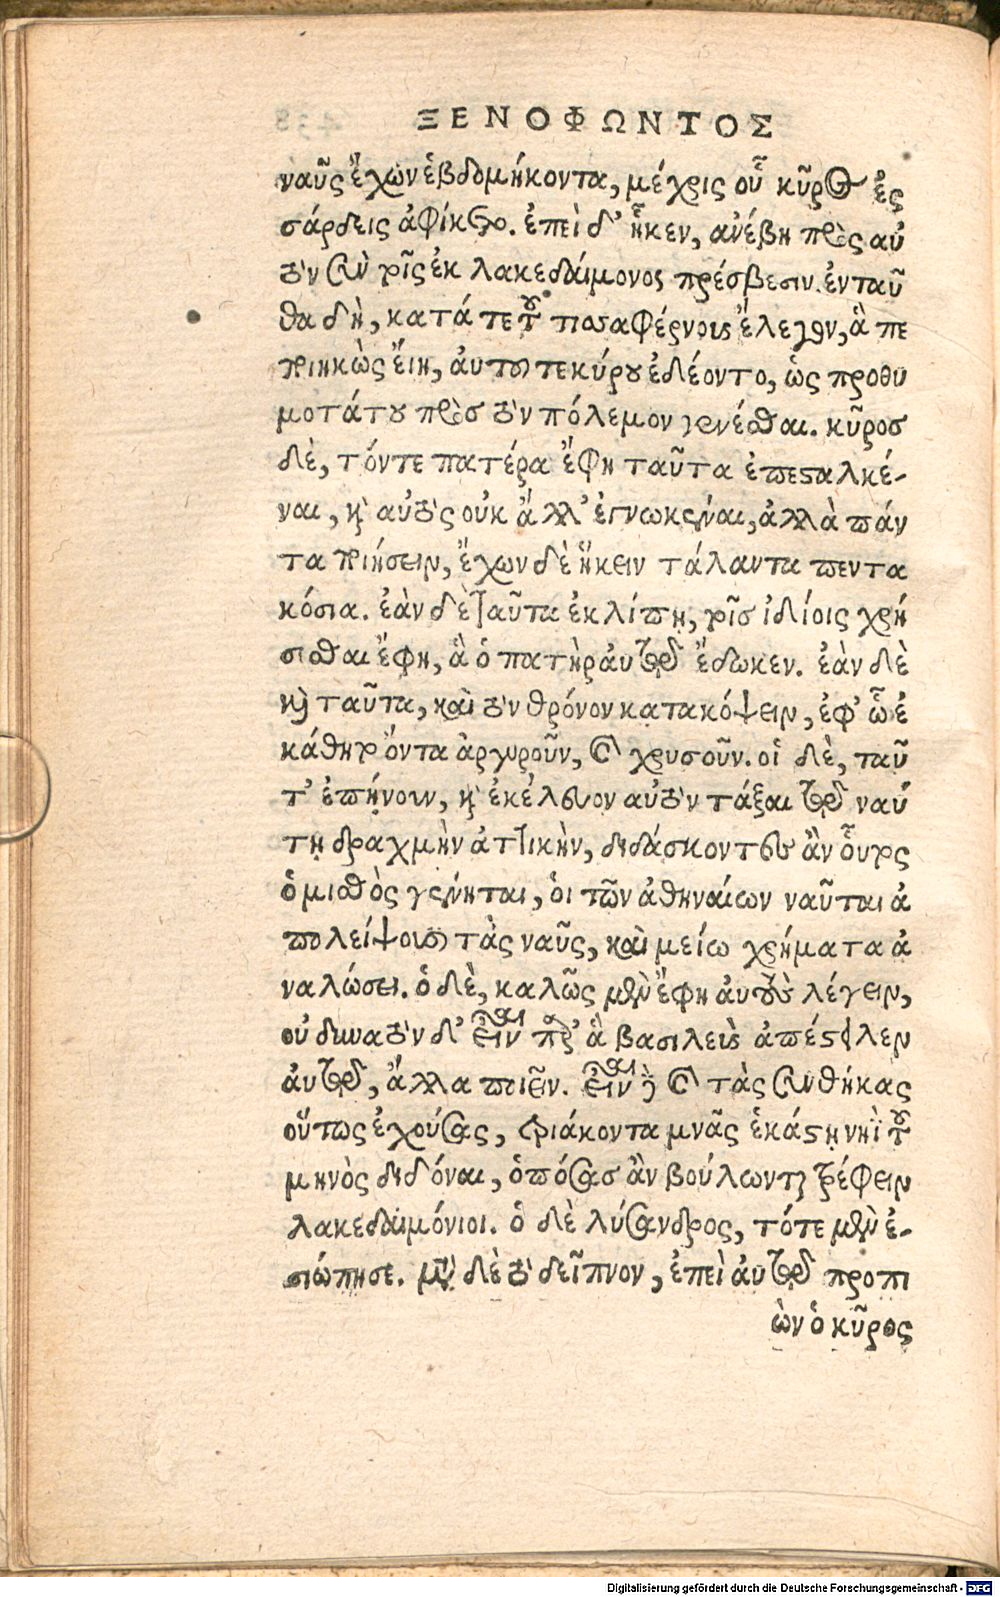 ΞΕΝΟΦΩΝΤΟΣ
ναῦς ἔχων ἑβδομήκοντα, μέχρις οὗ κῦρος ἐς
σάρδεις ἀφίκετο. ἐπεὶ δ' ἧκεν, ἀνέβη πρὸς αὐ
τὸν σὺν τοῖς ἐκ λακεδαίμονος πρέσβεσιν. ἐνταῦ
θα δὴ, κατά τε τοῦ τισσαφέρνους ἔλεγον, ἃ πε
ποιηκὼς εἴη, αὐτοῦ τε κύρου ἐδέοντο, ὡς προθυ
μοτάτου πρὸς τὸν πόλεμον γενέσθαι. κῦρος
δὲ, τόν τε πατέρα ἔφη ταῦτα ἐπεσταλκέ-
ναι, καὶ αὐτὸς οὐκ ἄλλ' ἐγνωκέναι, ἀλλὰ πάν
τα ποιήσειν, ἔχων δὲ ἥκειν τάλαντα πεντα
κόσια. ἐὰν δὲ ταῦτα ἐκλίπῃ, τοῖς ἰδίοις χρή
σεσθαι ἔφη, ἃ ὁ πατὴρ αὐτῷ ἔδωκεν. ἐὰν δὲ
καὶ ταῦτα, καὶ τὸν θρόνον κατακόψειν, ἐφ' ὧ ἐ
κάθητο ὄντα ἀργυροῦν, καὶ χρυσοῦν. οἱ δὲ, ταῦ
τ' ἐπῄνουν, καὶ ἐκέλευον αὐτὸν τάξαι τῷ ναύ
τῃ δραχμὴν ἀττικὴν, διδάσκοντες ὅτι ἂν οὗτος
ὁ μισθὸς γένηται, οἱ τῶν ἀθηναίων ναῦται ἀ
πολείψουσι τὰς ναῦς, καὶ μείω χρήματα ἀ
ναλώσει. ὁ δὲ, καλῶς μὲν ἔφη αὐτοὺς λέγειν,
οὐ δυνατὸν δ' εἶναι παρ' ἃ βασιλεὺς ἀπέστειλεν
αὐτῷ, ἄλλα ποιεῖν. εἶναι δὲ καὶ τὰς συνθήκας
οὕτως ἐχούσας, τριάκοντα μνᾶς ἑκάστῃ νηῒ τοῦ
μηνὸς διδόναι, ὁπόσας ἂν βούλωνται τρέφειν
λακεδαιμόνιοι. ὁ δὲ λύσανδρος, τότε μὲν ἐ-
σιώπησε. μετὰ δὲ τὸ δεῖπνον, ἐπεὶ αὐτῷ προπι
ὼν ὁ κῦρος
Digitalisierung gefördert durch die Deutsche Forschungsgemeinschaft - DFG